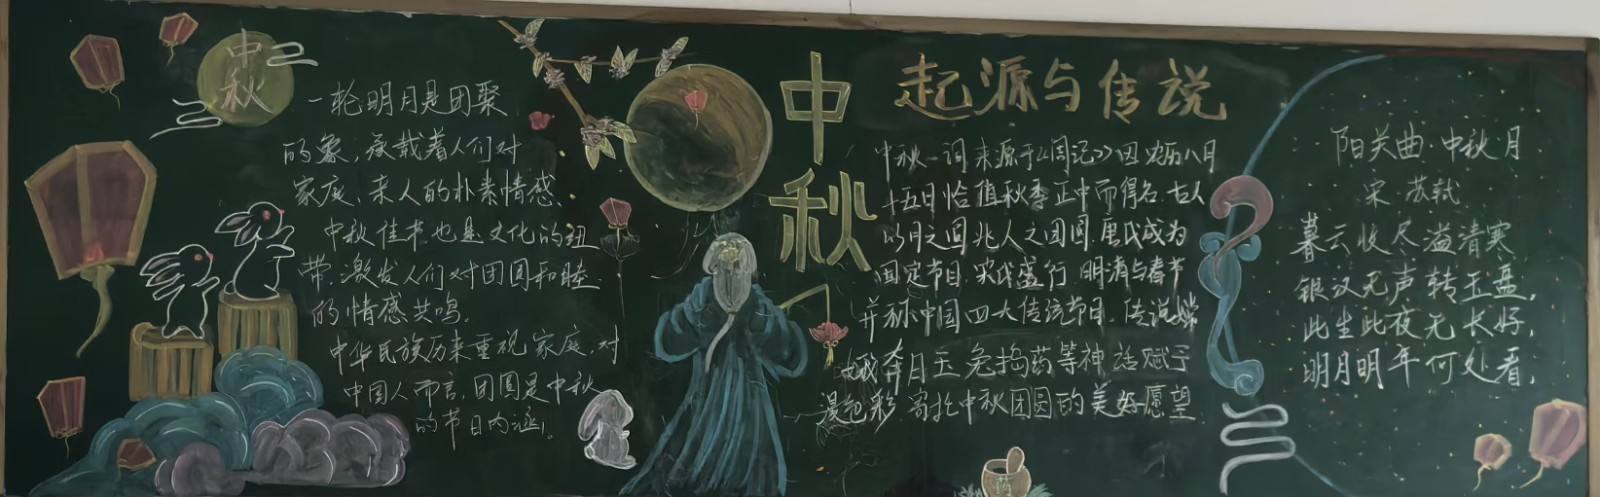 中
秋
一轮明月是团聚
的象,承载着人们对
家庭、亲人的朴素情感、
中秋佳节也是文化的纽
带,激发人们对团圆和睦
的情感共鸣。
中华民族历来重视家庭,对
中国人而言,团圆是中秋
的节日内涵!
中
秋
起源与传说
中秋一词来源于《周记》因农历八月
十五日恰值秋季正中而得名,古人
以月之圆兆人之团圆,唐代成为
固定节日,宋代盛行,明清与春节
并称中国四大传统节日。传说嫦
娥奔月玉兔捣药等神话赋予
漫色彩,寄托中秋团圆的美好愿望
药
阳关曲·中秋月
宋 苏轼
暮云收尽溢清寒
银汉无声转玉盘,
此生此夜无长好,
明月明年何处看,